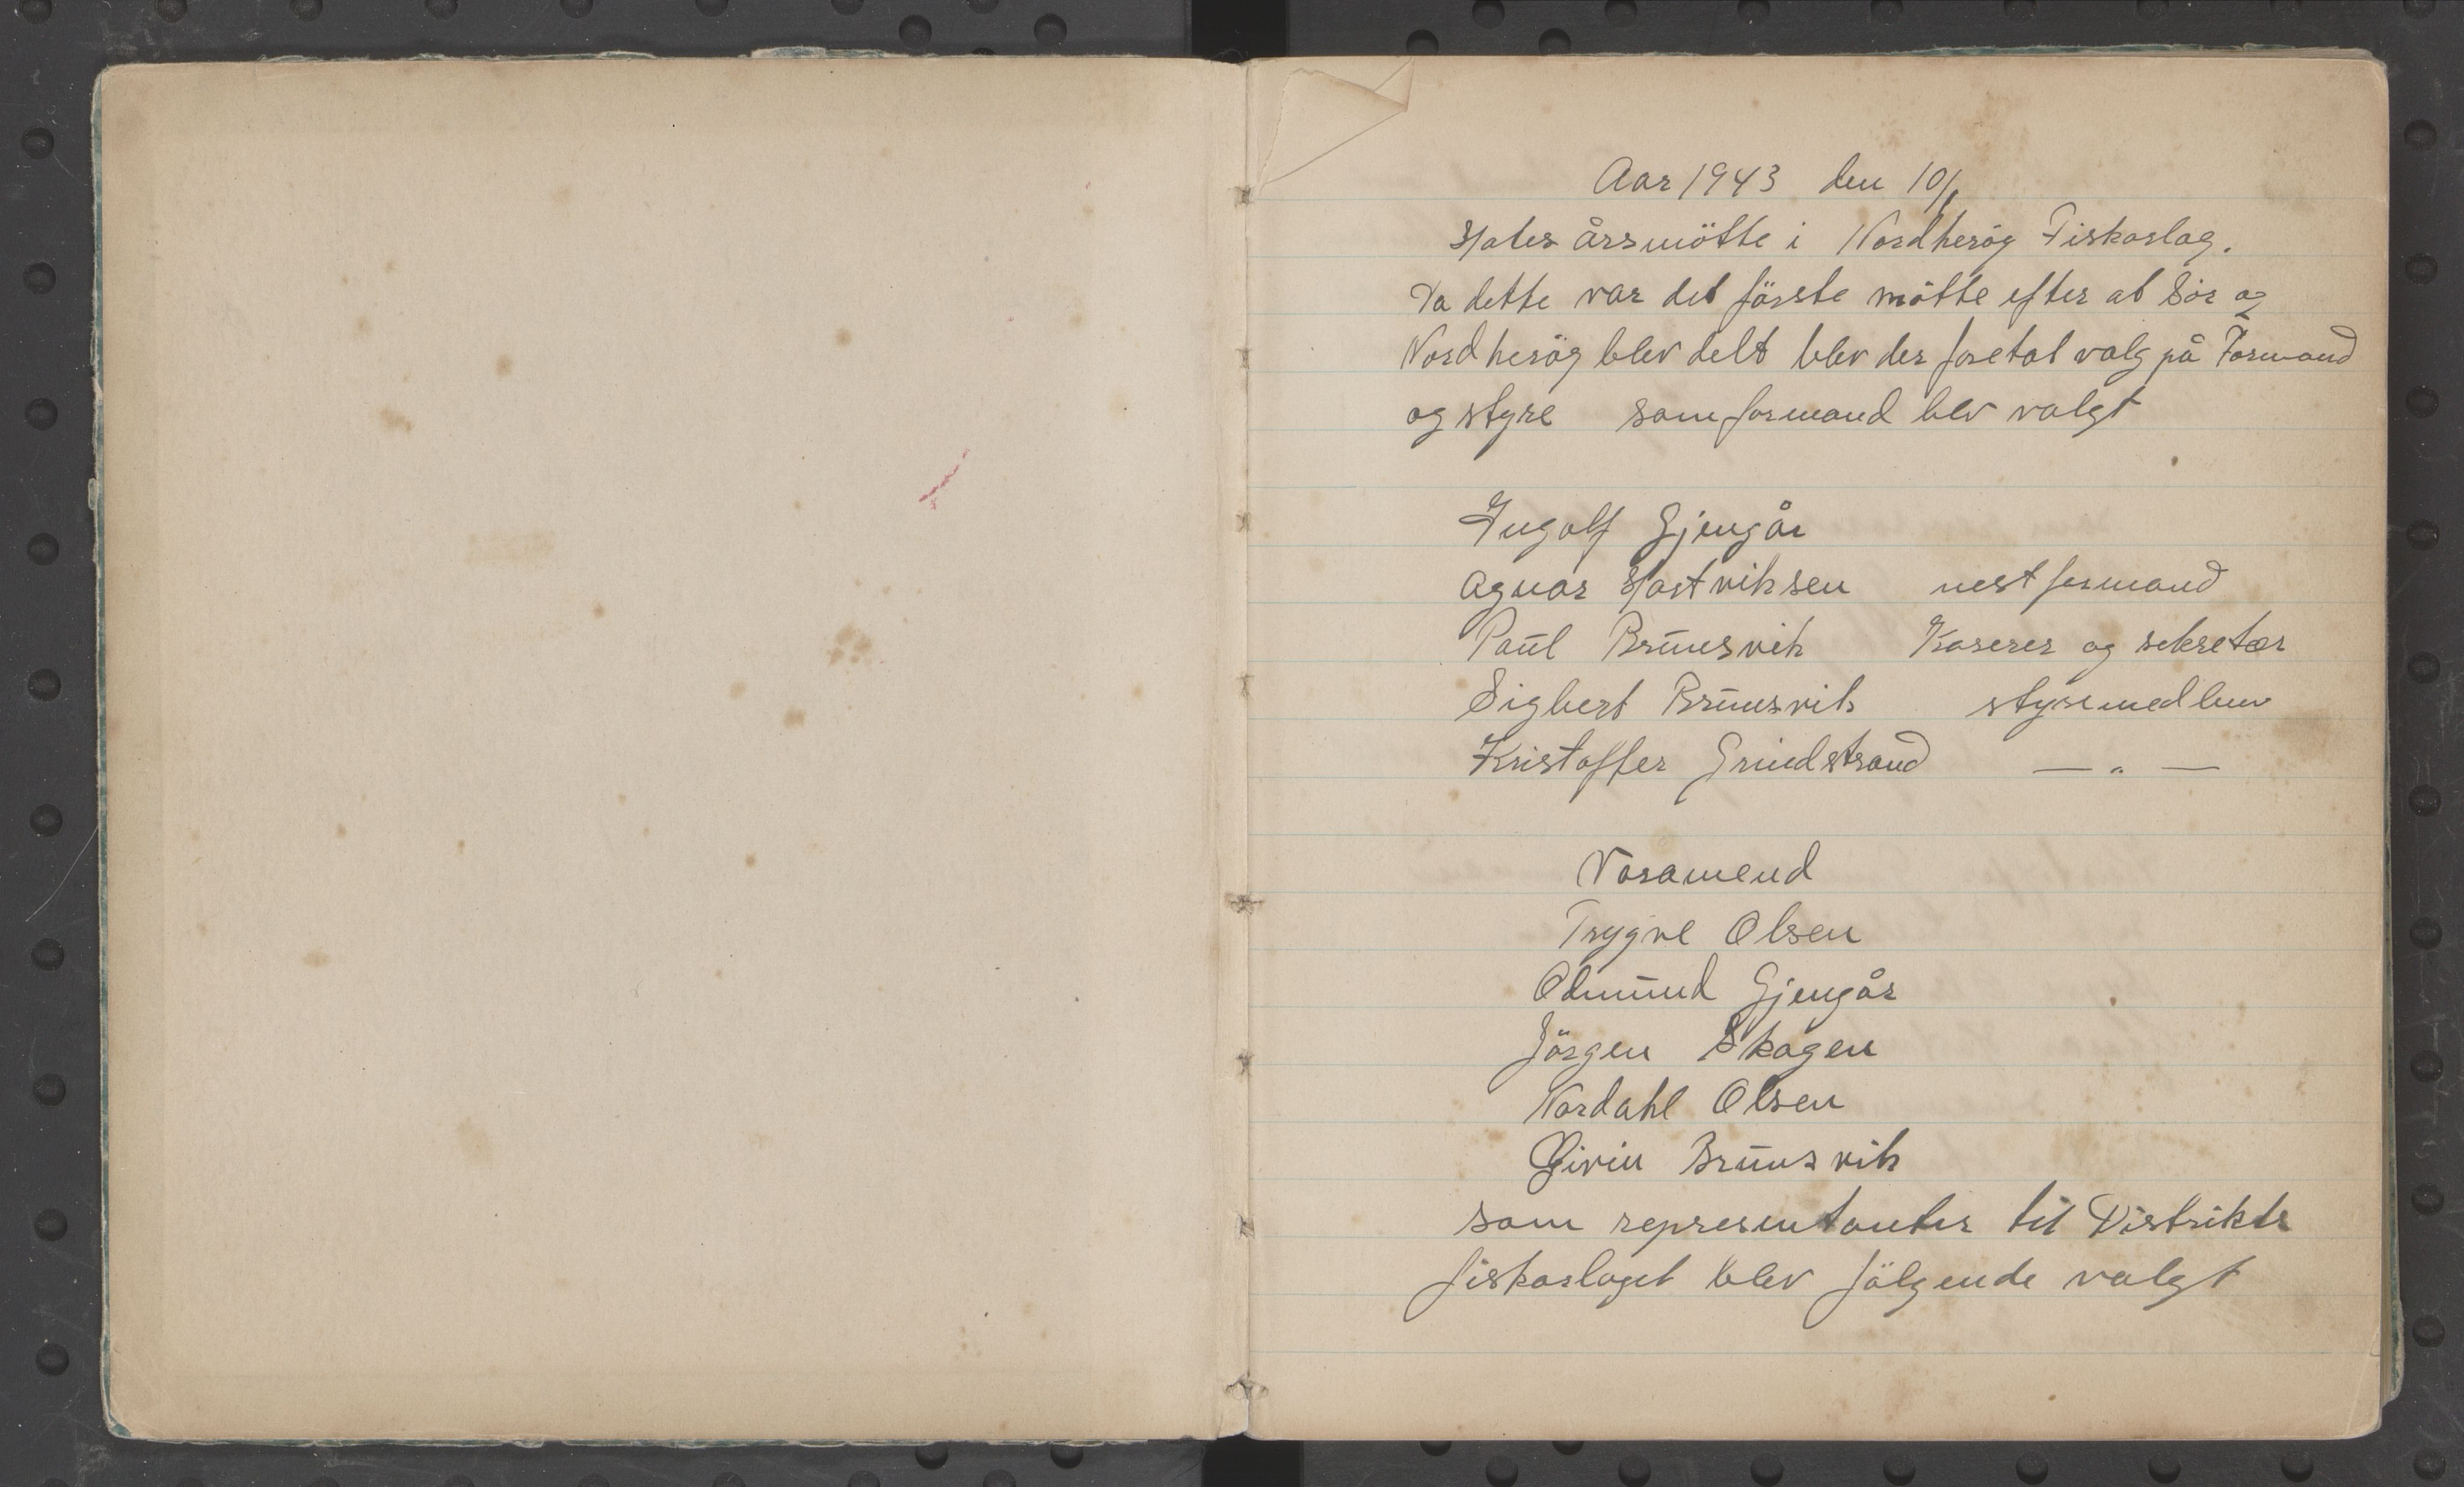 Aar 1943 den 10/1
Hates årsmötte i Nordherög Fiskarlag.
Da dette var det förste mötte efter at Sör og
Nordherög blev delt blev der foretat valg på Formand
og styre som formand blev valgt
Ingolf Gjengår
Agnar Hartviksen nestformand
Paul Brunsvik Kaserer og sekretær
Sigbert Brunsvik styremedlem
Kristoffer Grindstrand — " —
Varamend
Trygve Olsen
Odmund Gjengår
Jörgen Skagen
Nordahl Olsen
Eivin Brunsvik
som representanter til Distrikts
fiskarlaget blev fölgende valgt